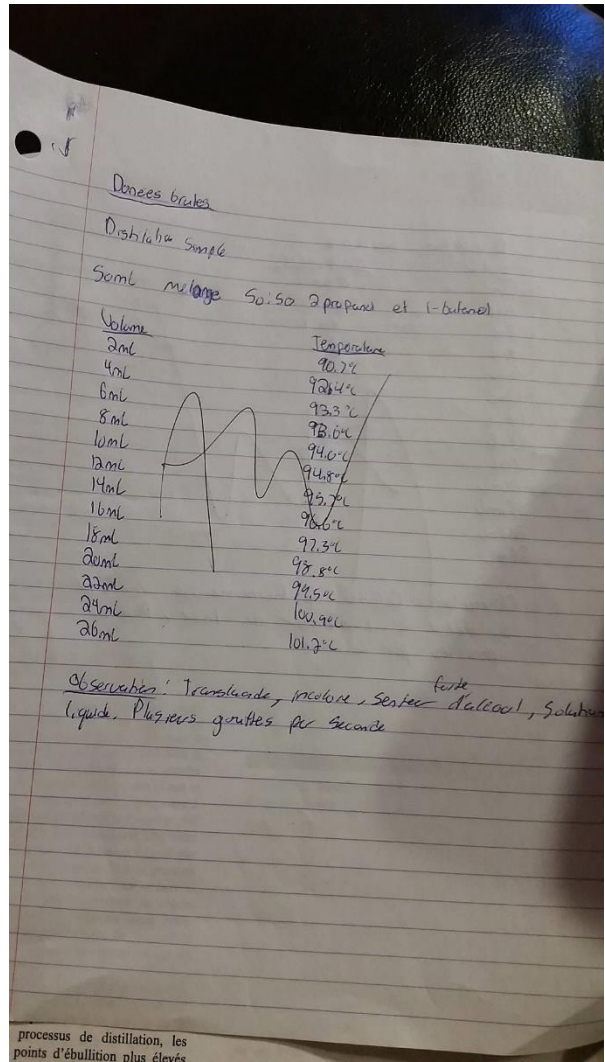 Donees brutes
Distilation Simple
50mL melange 50:50 2propanol et 1-butanol
Volume Temperature
2mL 90.7°C
4mL 92.4°C
6mL 93.3°C
8mL
10mL 94.0°C
12mL 94.8°C
14mL 95.7°C
16mL 96.6°C
18mL 97.3°C
20mL 98.8°C
22mL 99.5°C
24mL 100.9°C
26mL 101.7°C
Observation: Translucide, incolore, senteur forte d'alcool, Solution
liquide. Plusieurs gouttes par seconde
processus de distillation, les
points d'ébullition plus élevés